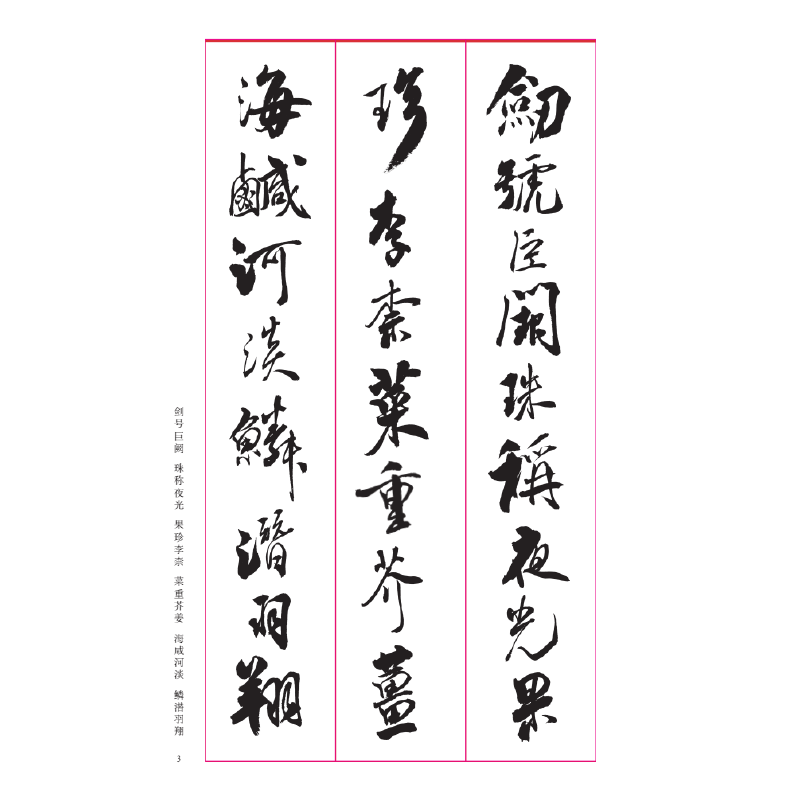 劒號巨闕珠稱夜光果
珍李柰菜重芥薑
海鹹河淡鱗潛羽翔
剑号巨阙 珠称夜光 果珍李柰 菜重芥姜 海咸河淡 鳞潜羽翔
3